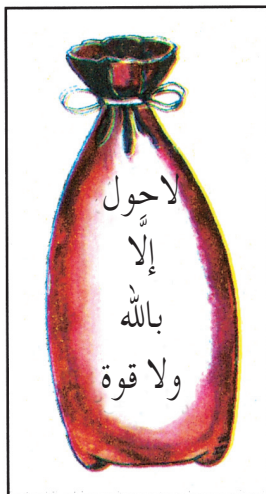 لا حول
إلَّا
بالله
ولا قوة